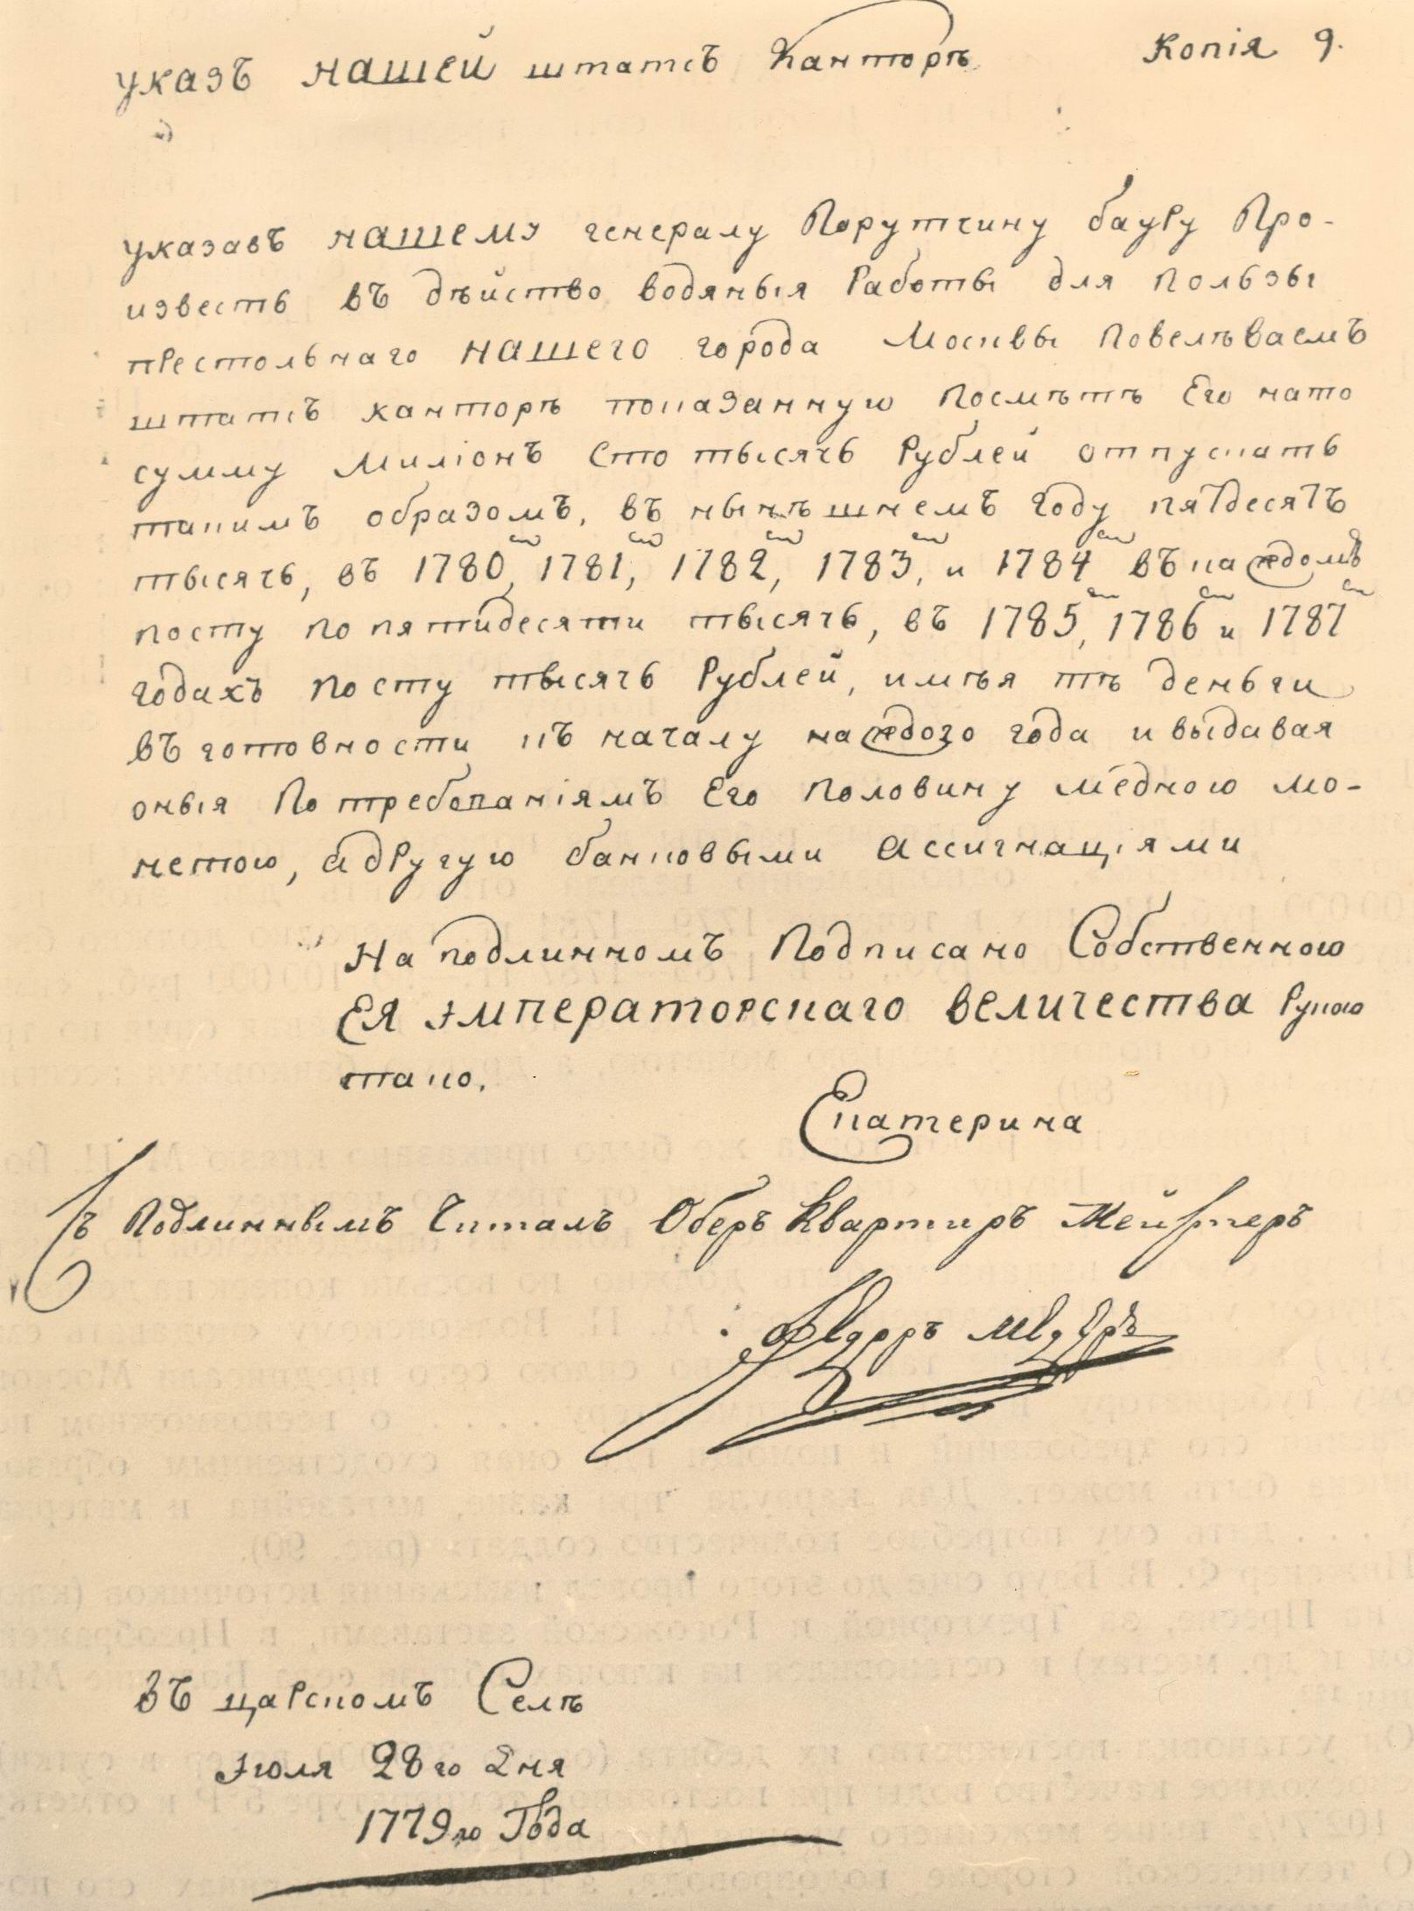 указъ нашей штатсъ Канторѣ Копія 9.
указавъ нашему генералу Порутчину бауру Про-
известь въ дѣйство водяныя Работы для пользы
престольнаго нашего города Москвы повелѣваемъ
штатсъ канторѣ показанную посмѣтѣ Его нато
сумму миліонъ сто тысячь Рублей отпускать
такимъ образомъ, въ нынѣшнемъ году пятдесятъ
тысячь, въ 1780, 1781, 1782, 1783, и 1784 въ каждомъ
посту по пятидесяти тысячь, въ 1785, 1786 и 1787
годахъ по сту тысячь Рублей, имѣя тѣ деньги
въ готовности къ началу каждого года и выдавая
оныя По требованіямъ Его половину медною мо-
нетою, а другую банковыми ассигнаціями
На подлинномъ Подписано Собственною
ЕЯ императорскаго величества Рукою
тако.
Екатерина
Съ Подлиннымъ Читалъ Оберъ Квартиръ Мейстеръ
въ царскомъ Селѣ
Июля 28го Дня
1779го Года